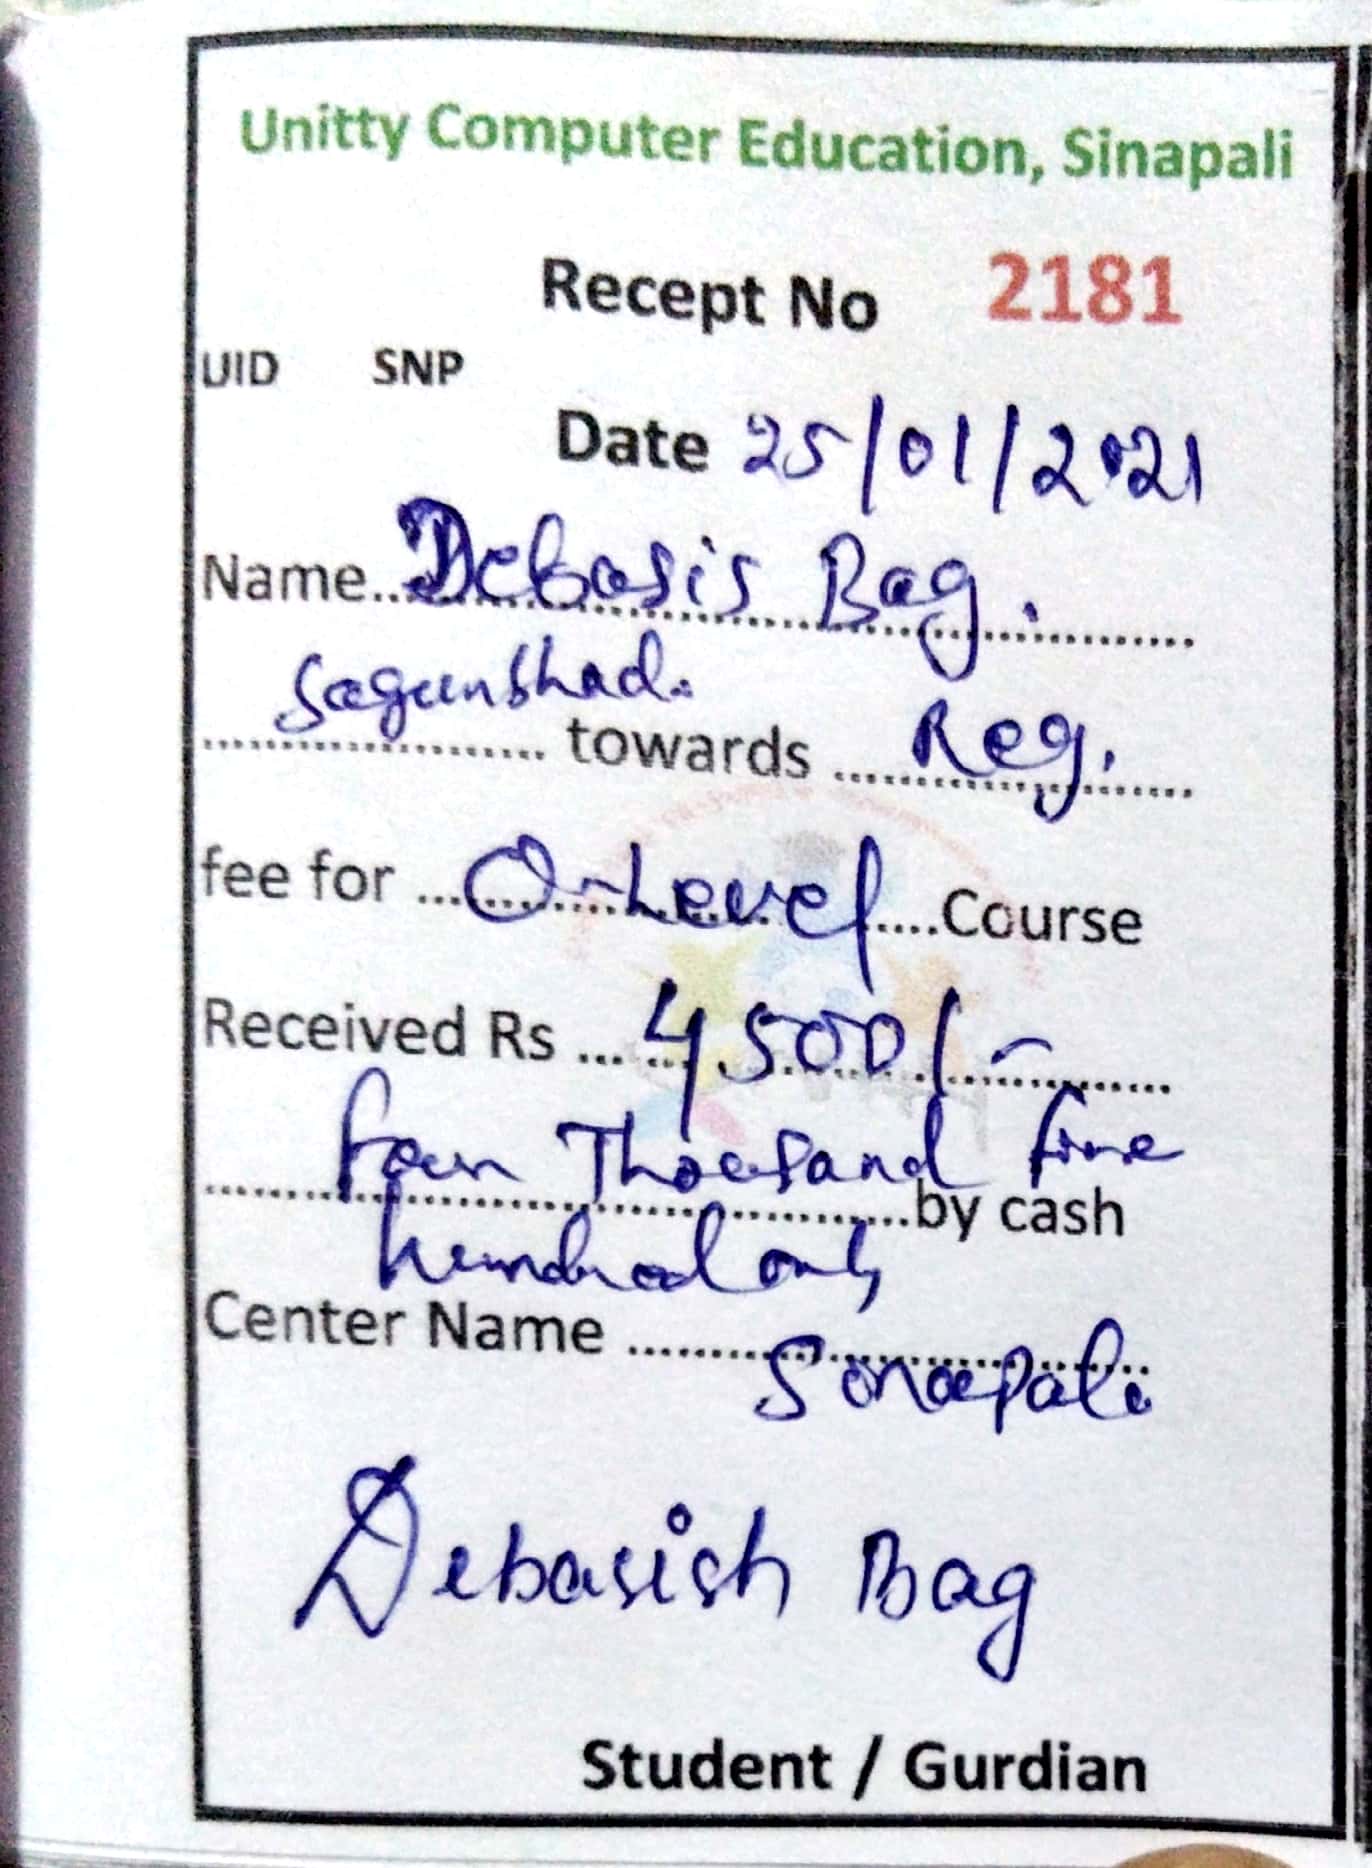 Unitty Computer Education, Sinapali
Recept No 2181
UID SNP
Date 25/01/2021
Name Debasis Bag.
Sagunbhad.
towards Reg.
fee for O-Level Course
Received Rs 4500/-
four Thousand five
by cash
hundred only
Center Name
Sinapali
Debasish Bag
Student / Gurdian